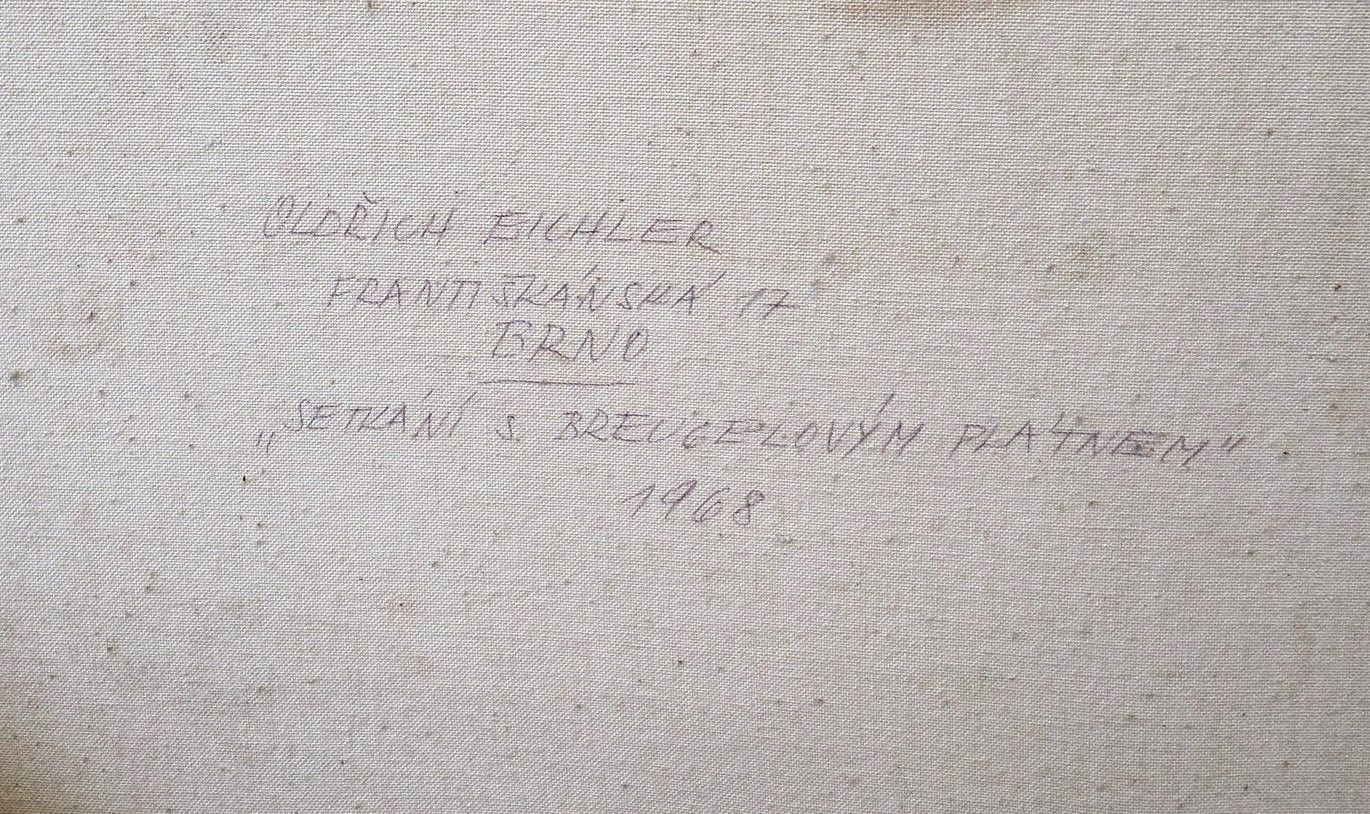 OLDŘICH EICHLER
FRANTIŠKÁNSKÁ 17
BRNO
„SETKÁNÍ S BREUGELOVÝM PLÁTNEM“
1968